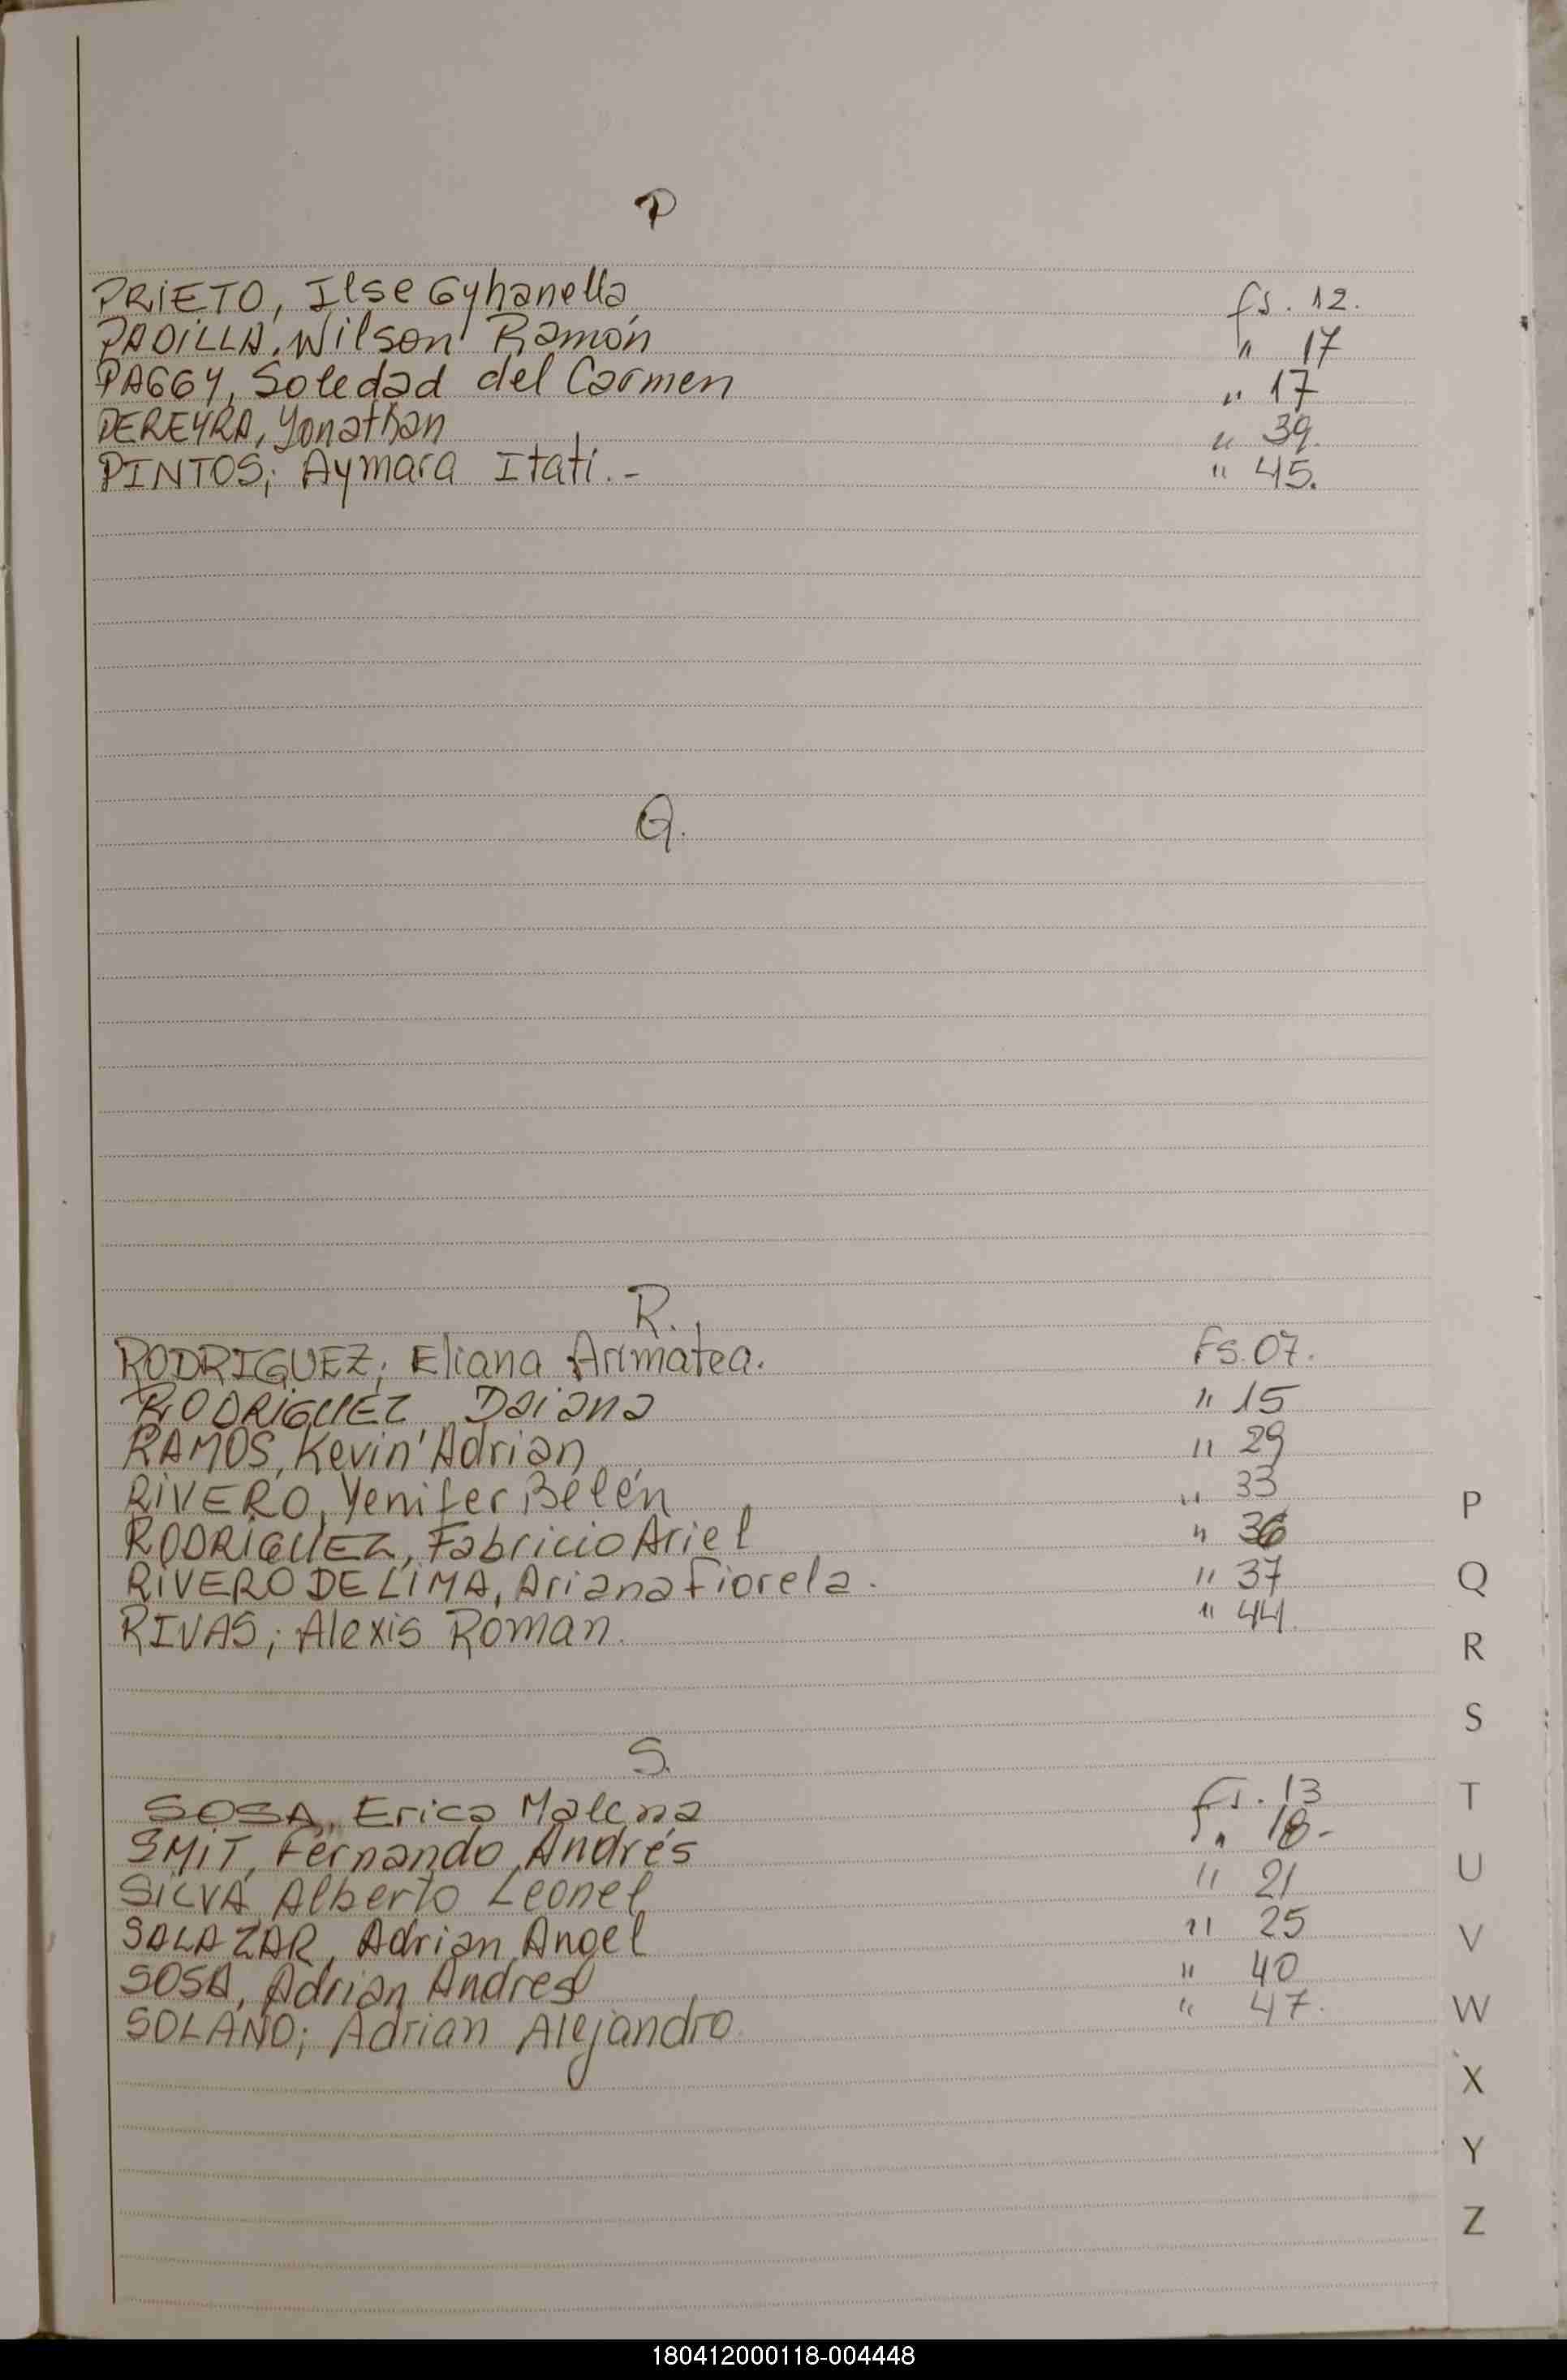 P
PRIETO, Ilse Gyhanella fs. 12.
PADILLA, Wilson Ramón " 17
PAGGY, Soledad del Carmen " 17
PEREYRA, Yonathan " 39.
PINTOS; Aymara Itatí.- " 45.
Q.
R.
RODRIGUEZ; Eliana Arimatea. Fs. 07.
RODRIGUEZ Daiana " 15
RAMOS, Kevin Adrian " 29
RIVERO, Yenifer Belén " 33
RODRIGUEZ, Fabricio Ariel " 36
RIVERO DE LIMA, Ariana Fiorela. " 37
RIVAS; Alexis Roman. " 44.
S.
SOSA, Erica Malena Fs. 13
SMIT, Fernando Andrés " 18-
SILVA Alberto Leonel " 21
SALAZAR, Adrian Angel " 25
SOSA, Adrian Andres " 40
SOLANO; Adrian Alejandro. " 47.
P
Q
R
S
T
U
V
W
X
Y
Z
180412000118-004448